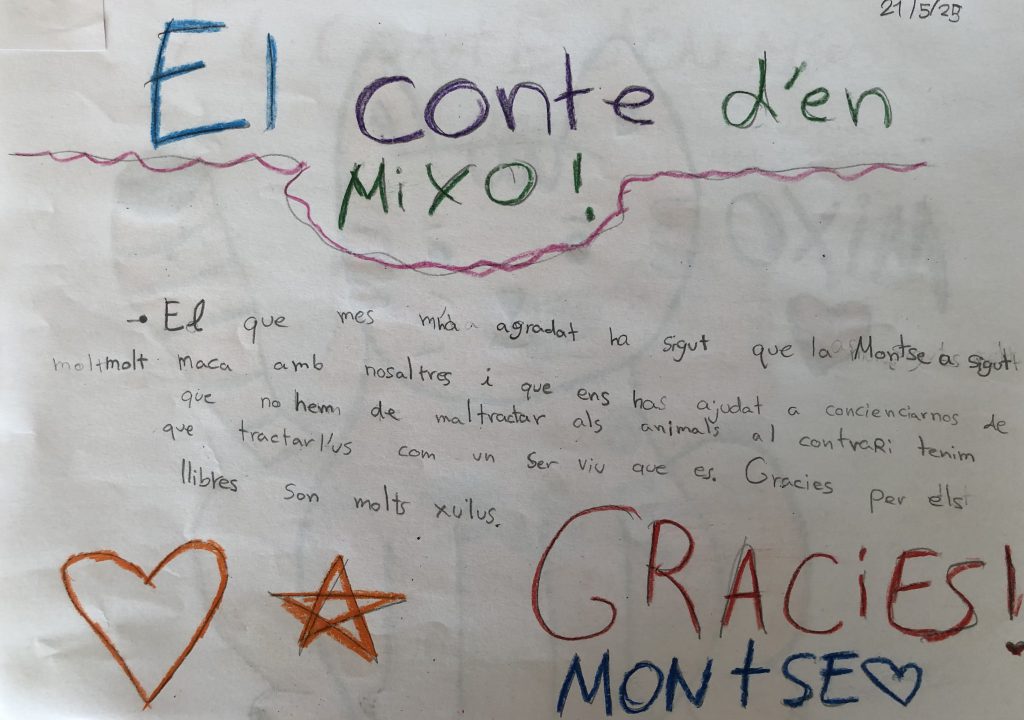 21/5/25
El conte d'en
MiXO!
El que mes mhà agradat ha sigut que la Montse às sigut
molt molt maca amb nosaltres i que ens has ajudat a concienciarnos de
que no hem de maltractar als animals al contrari tenim
que tractarl'us com un ser viu que es. Gracies per els
llibres son molts xulus.
GRACiES!
MONTSE